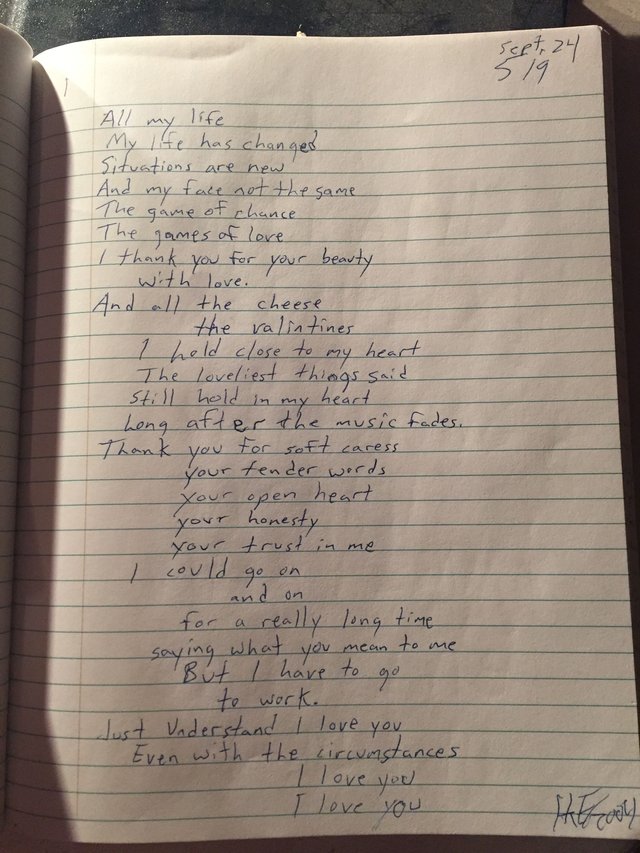 Sept. 24
5 19
1
All my life
My life has changed
Situations are new
And my face not the same
The game of chance
The games of love
I thank you for your beauty
with love.
And all the cheese
the valintines
I hold close to my heart
The loveliest things said
Still hold in my heart
Long after the music fades.
Thank you for soft caress
your tender words
your open heart
your honesty
your trust in me
I could go on
and on
for a really long time
saying what you mean to me
But I have to go
to work.
Just Understand I love you
Even with the circumstances
I love you
I love you